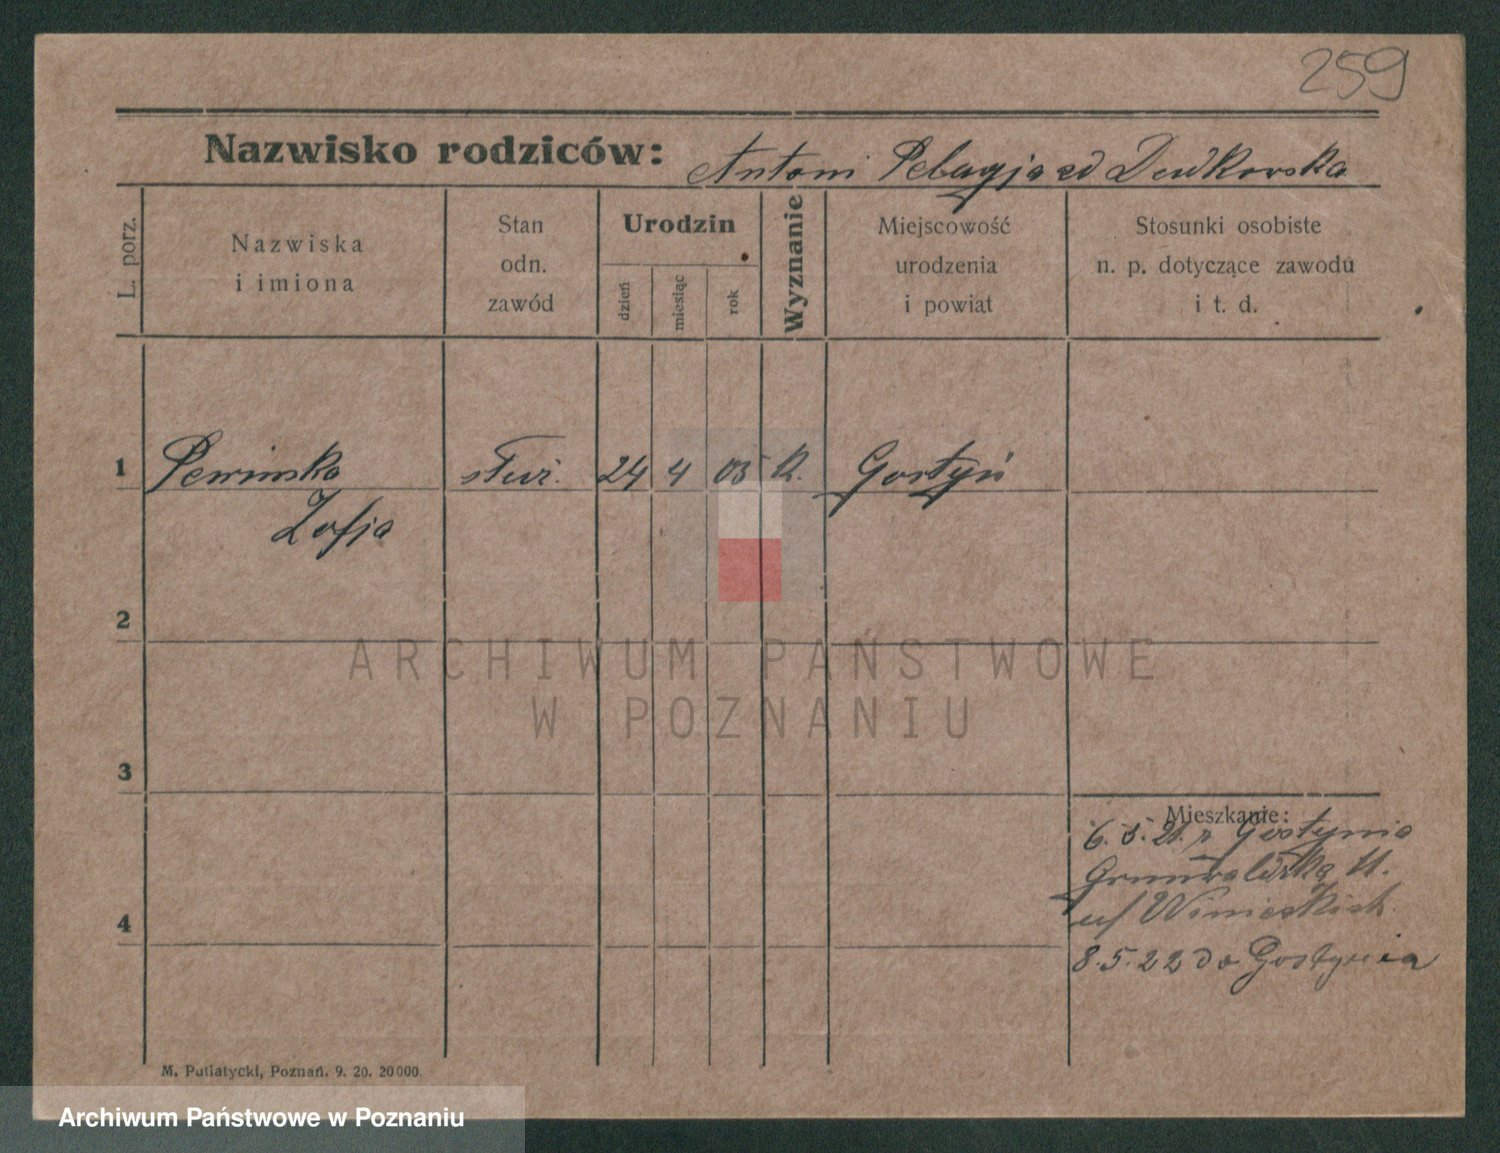 259
Nazwisko rodziców: Antoni Pelagja zd Dudkowska
L. porz.
Nazwiska
i imiona
Stan
odn.
zawód
Urodzin
dzień
miesiąc
rok
Wyznanie
Miejscowość
urodzenia
i powiat
Stosunki osobiste
n. p. dotyczące zawodu
i t. d.
1 służ. 24 4 05 k. Gostyń
Zofja
2
ARCHIWUM PAŃSTWOWE
W POZNANIU
3
Mieszkanie:
Gostynia
4
8.5.22 do Gostynia
M. Putiatycki, Poznań. 9. 20. 20000.
Archiwum Państwowe w Poznaniu